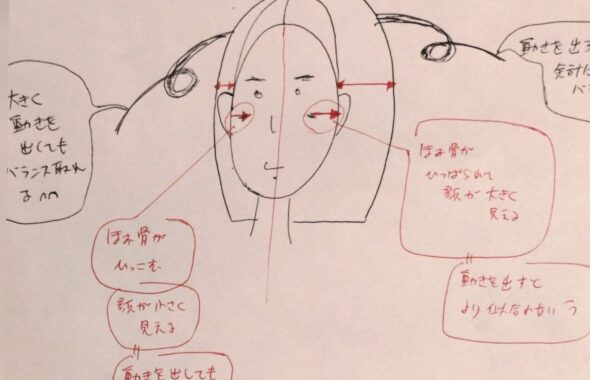 大きく
動きを
出しても
バランス取れ
る
動きを出す
余計に
バ
ほお骨が
ひっこむ
顔が小さく
見える
動きを出しても
ほお骨が
ひっぱられて
顔が大きく
見える
動きを出すと
より似合わない